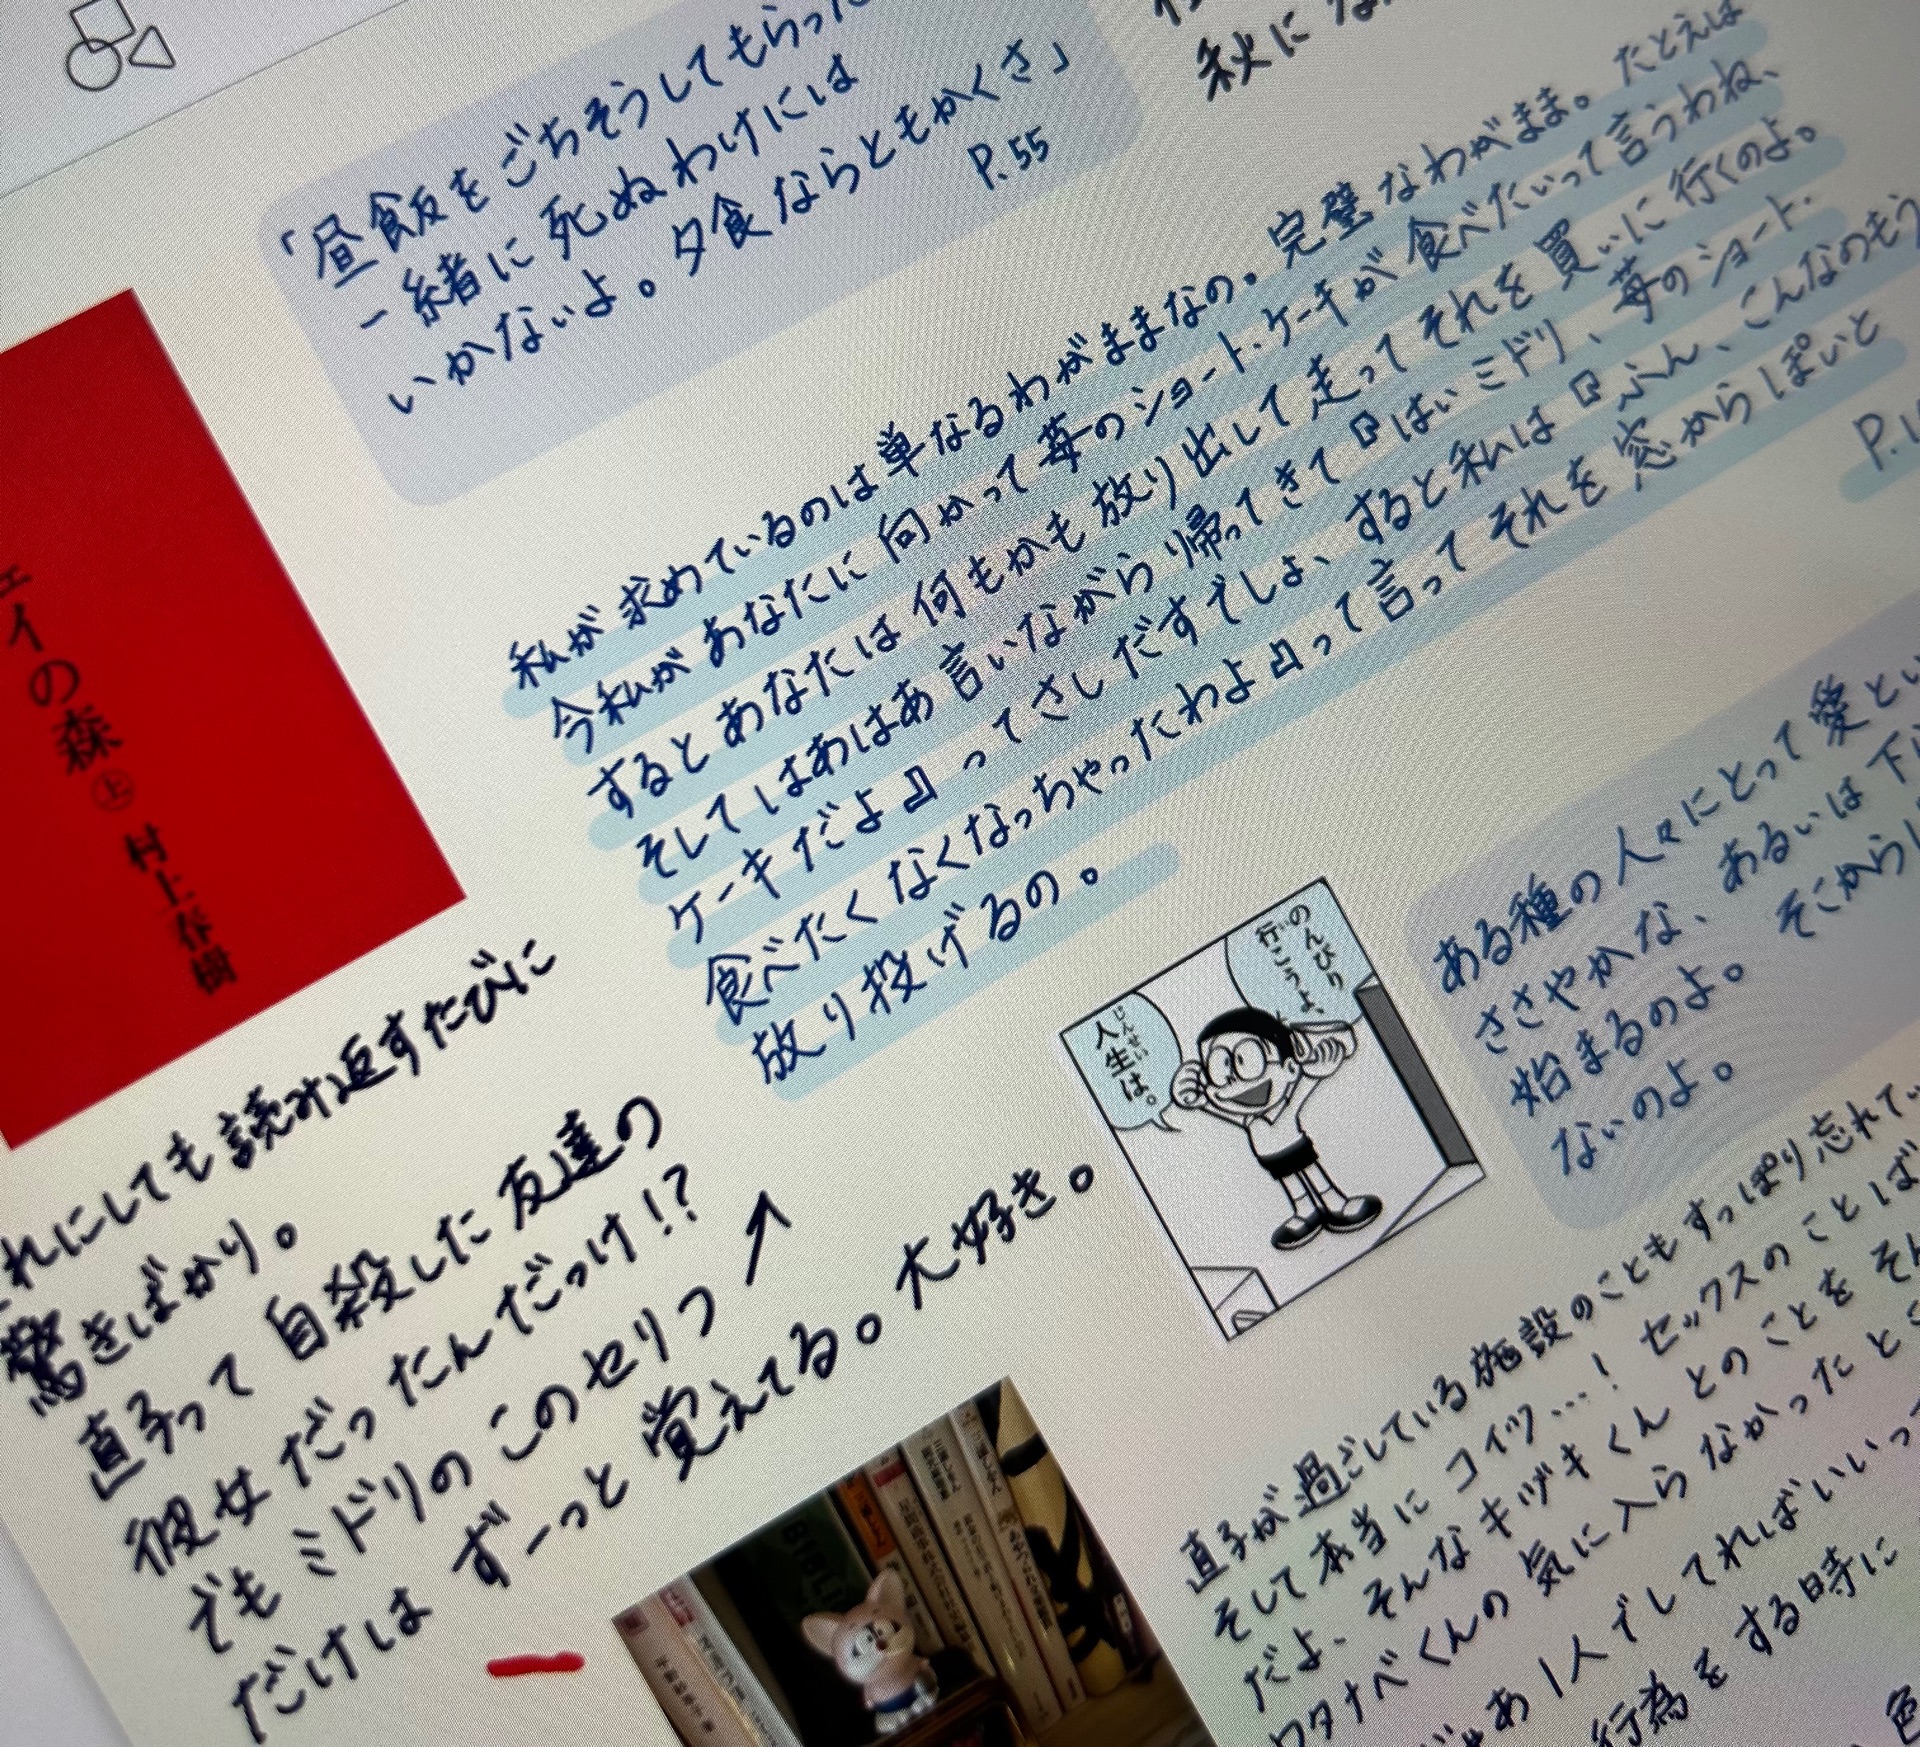 「昼飯をごちそうしてもらった
一緒に死ぬわけには
いかないよ。夕食ならともかくさ」
P.55
秋に
私が求めているのは単なるわがままなの。完璧なわがまま。たとえば
今私があなたに向かって苺のショート・ケーキが食べたいって言うわね、
するとあなたは何もかも放り出して走ってそれを買いに行くのよ。
そしてはあはあ言いながら帰ってきて『はいミドリ、苺のショート・
ケーキだよ』ってさしだすでしょ、すると私は『ふん、こんなのもう
食べたくなくなっちゃったわよ』って言ってそれを窓からぽいと
放り投げるの。
P.1
ェイの森 上 村上春樹
れにしても読み返すたびに
驚きばかり。
直子って自殺した友達の
彼女だったんだっけ!?
でもミドリのこのセリフ↗
だけはずーっと覚えてる。大好き。
のんびり
行こうよ、
人生は。
じんせい
ある種の人々にとって愛とい
ささやかな、あるいは下
始まるのよ。そこからし
ないのよ。
直子が過ごしている施設のこともすっぽり忘れてい
そして本当にコイツ…！セックスのことば
だよ、そんなキヅキくんとのことをそん
ワタナベくんの気に入らなかったとこ
あ1人でしてればいいっ
行為をする時に
色
BIBLI